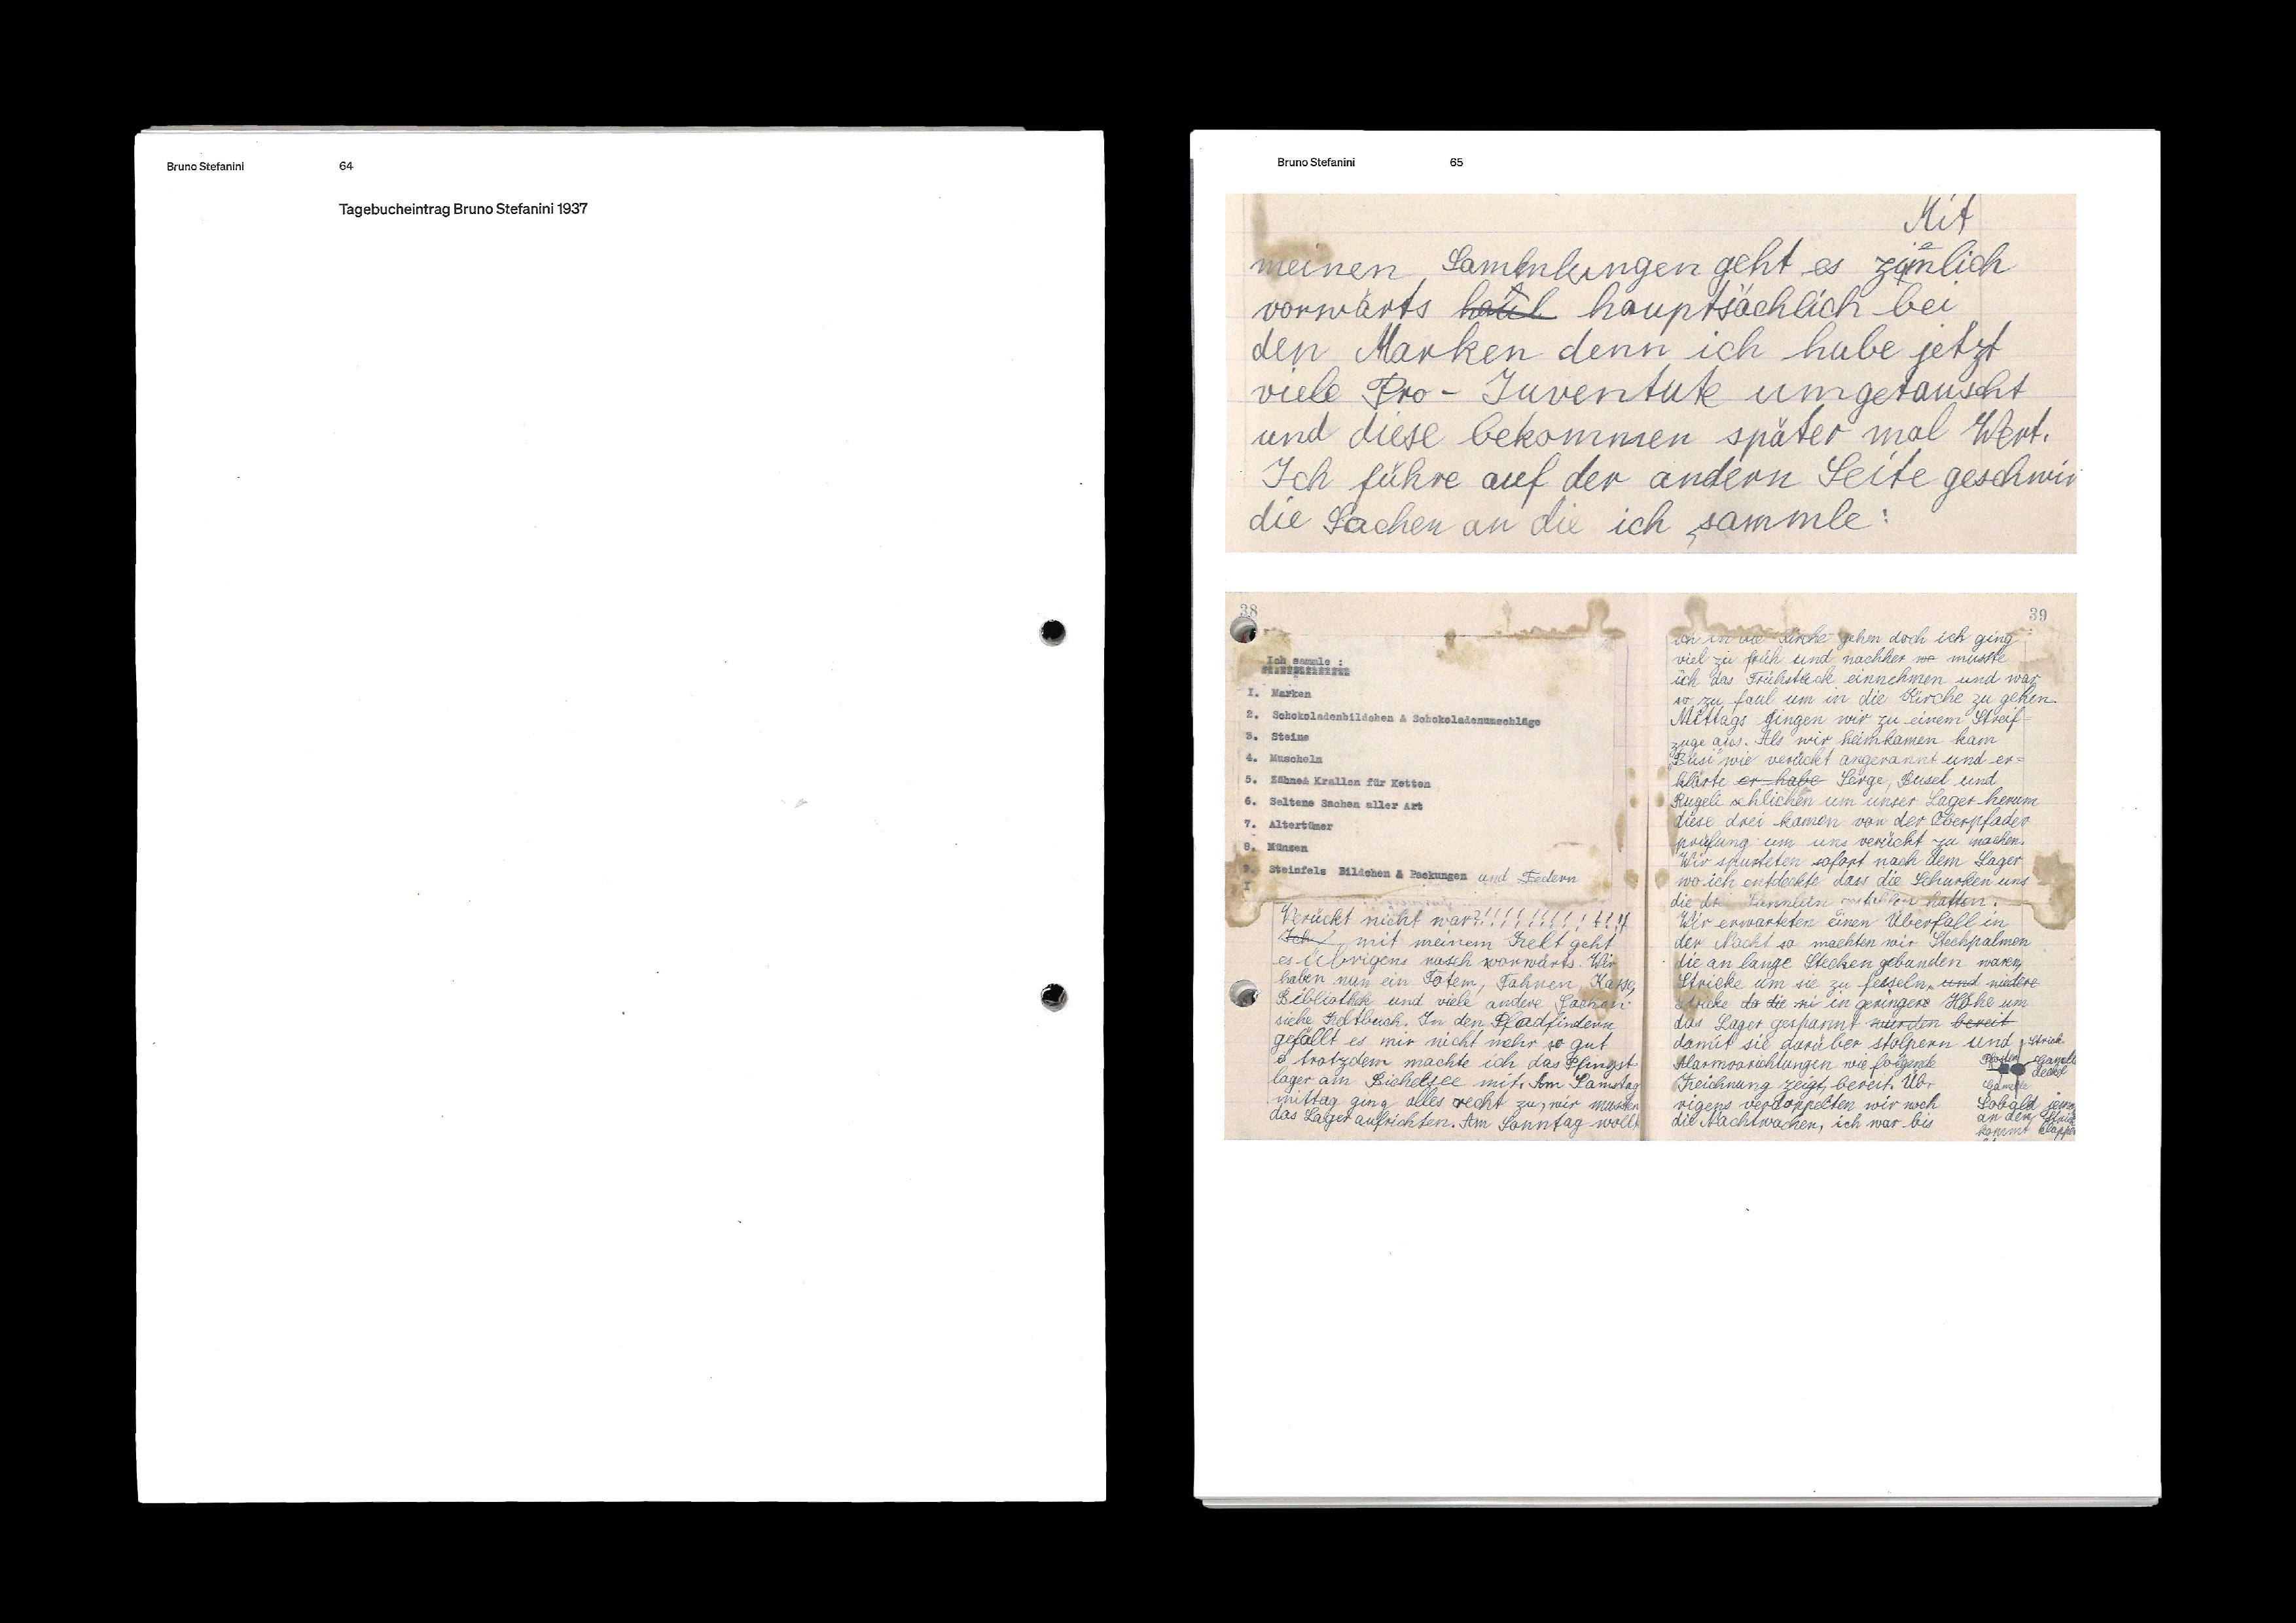 Bruno Stefanini 64
Tagebucheintrag Bruno Stefanini 1937
Bruno Stefanini 65
Mit
meinen Sammlungen geht es zimlich
vorwärts hauptsächlich bei
den Marken denn ich habe jetzt
viele Pro - Juventute umgetauscht
und diese bekommen später mal Wert.
Ich führe auf der andern Seite geschwin
die Sachen an die ich sammle:
38
Ich sammle :
1. Marken
2. Schokoladenbildchen & Schokoladenumschläge
3. Steine
4. Muscheln
5. Zähne& Krallen für Ketten
6. Seltene Sachen aller Art
7. Altertümer
8. Münzen
9. Steinfels Bildchen & Packungen und Federn
Verückt nicht war?!!!!!!!!!!!!!
Ich mit meinem Zelt geht
es übrigens rasch vorwärts. Wir
haben nun ein Totem, Fahnen, Kasse,
Bibliothek und viele andere Sachen
siehe Zeltbuch. In den Pfadfindern
gefällt es mir nicht mehr so gut
trotzdem machte ich das Pfingst
lager am Bichelsee mit. Am Samstag
mittag ging alles recht zu, wir mussten
das Lager aufrichten. Am Sonntag wollt
39
ich in die Kirche gehen doch ich ging
viel zu früh und nachher musste
ich das Frühstück einnehmen und war
so zu faul um in die Kirche zu gehen.
Mittags gingen wir zu einem Streif-
zuge aus. Als wir heimkamen kam
Büsi wie verückt angerannt und er-
klärte er habe Serge, Busel und
Kugeli schlichen um unser Lager herum
diese drei kamen von der Oberpfader
prüfung um uns verückt zu machen.
Wir spurteten sofort nach dem Lager
wo ich entdeckte dass die Schurken uns
die hatten.
Wir erwarteten einen Überfall in
der Nacht so machten wir Stechpalmen
die an lange Stecken gebunden waren,
Stricke um sie zu fesseln, und niedere
Stricke in geringere Höhe um
das Lager gespannt wurden bereit
damit sie darüber stolpern und
Alarmvorichtungen wie folgende
Zeichnung zeigt, bereit. Üb-
rigens verdoppelten wir noch
die Nachtwachen, ich war bis
Strick
deckel
Gamelle
Sobald jem
an den Strick
kommt klapper